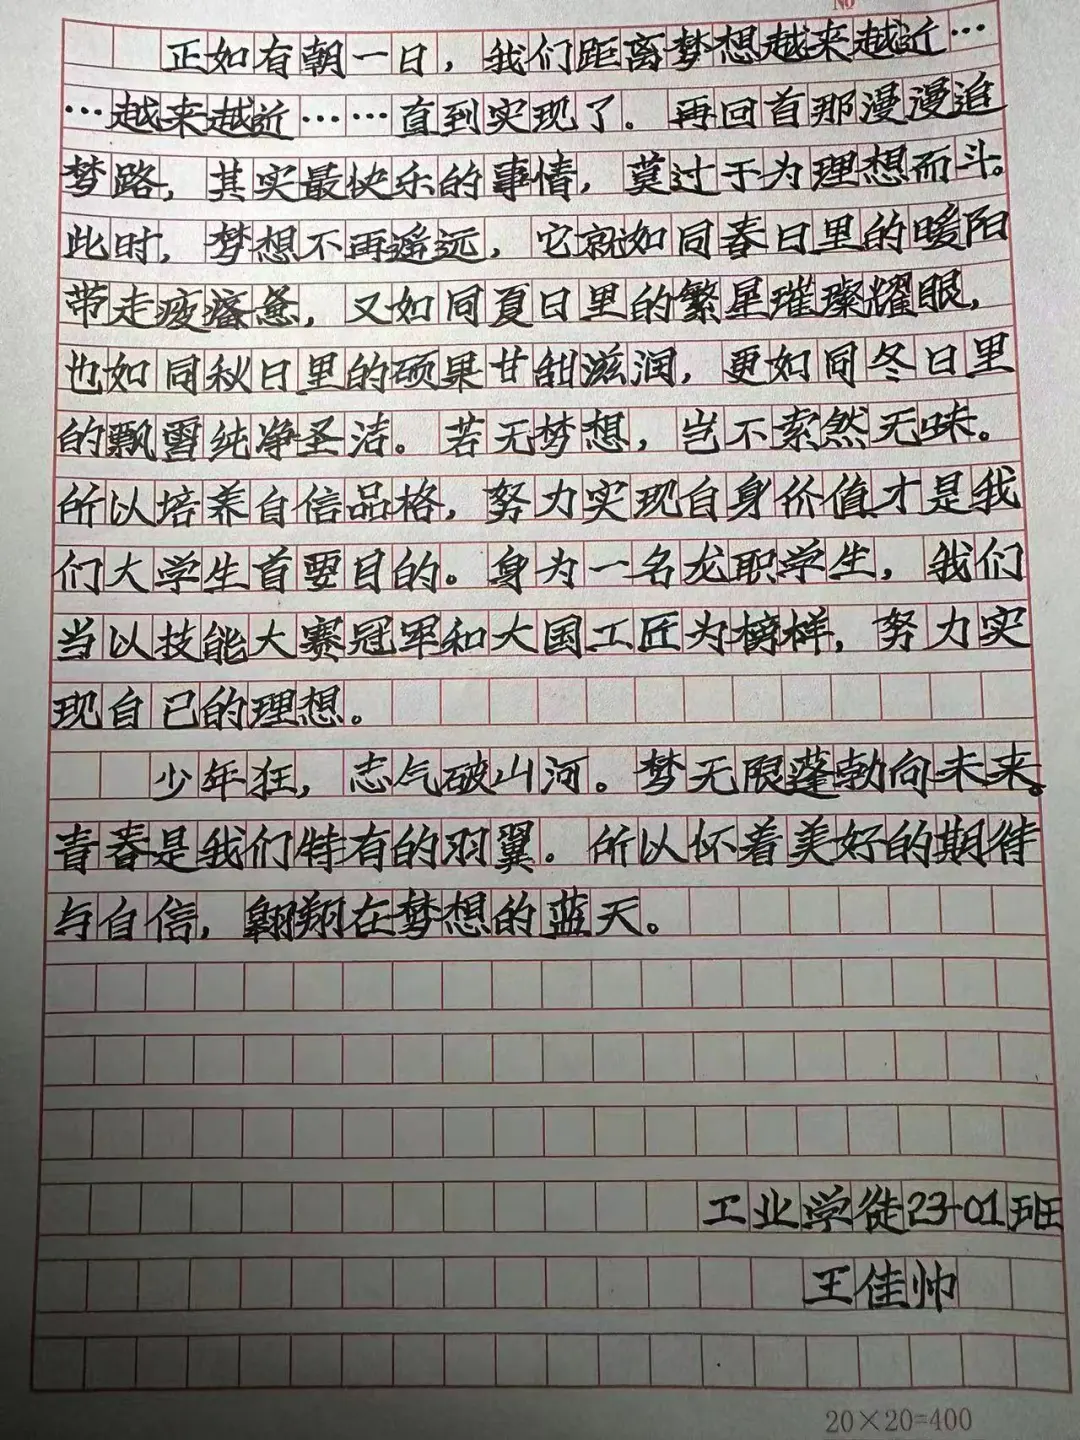 No
正如有朝一日，我们距离梦想越来越近…
…越来越近……直到实现了。再回首那漫漫追
梦路，其实最快乐的事情，莫过于为理想而斗。
此时，梦想不再遥远，它就如同春日里的暖阳
带走疲瘙惫，又如同夏日里的繁星璀璨耀眼，
也如同秋日里的硕果甘甜滋润，更如同冬日里
的飘雪纯净圣洁。若无梦想，岂不索然无味。
所以培养自信品格，努力实现自身价值才是我
们大学生首要目的。身为一名龙职学生，我们
当以技能大赛冠军和大国工匠为榜样，努力实
现自己的理想。
少年狂，志气破山河。梦无限蓬勃向未来。
青春是我们特有的羽翼。所以怀着美好的期待
与自信，翱翔在梦想的蓝天。
工业学徒23-01班
王佳帅
20×20=400